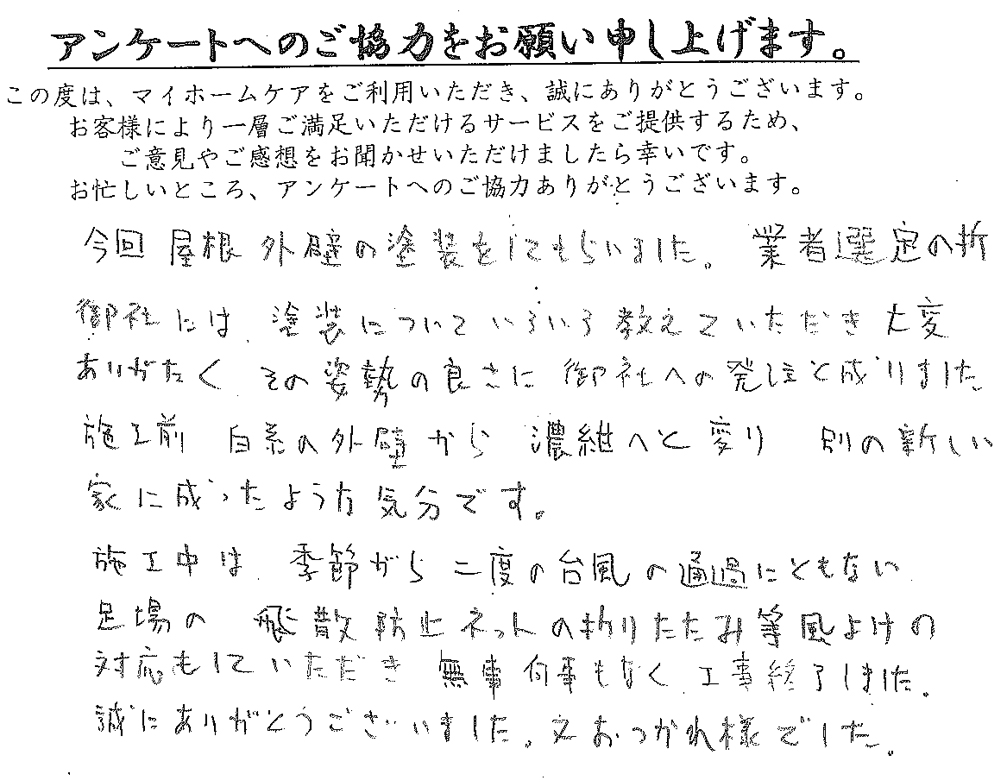 アンケートへのご協力をお願い申し上げます。
この度は、マイホームケアをご利用いただき、誠にありがとうございます。
お客様により一層ご満足いただけるサービスをご提供するため、
ご意見やご感想をお聞かせいただけましたら幸いです。
お忙しいところ、アンケートへのご協力ありがとうございます。
今回 屋根 外壁の塗装をしてもらいました。 業者選定の折
御社には 塗装について いろいろ教えていただき 大変
ありがたく その姿勢の良さに 御社への発注と成りました
施工前 白系の外壁から 濃紺へと変り 別の新しい
家に成ったような気分です。
施工中は 季節がら 二度の台風の通過にともない
足場の 飛散防止ネットの折りたたみ等風よけの
対応もしていただき 無事何事もなく 工事終了しました。
誠にありがとうございました。又おつかれ様でした。